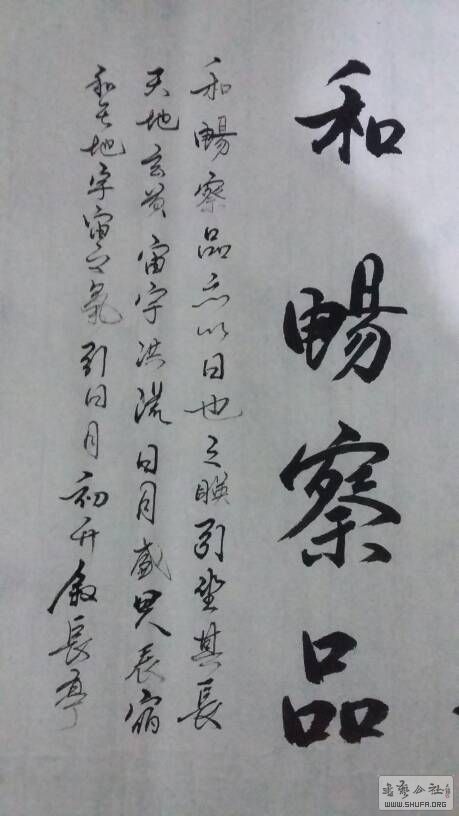 和暢察品
和暢察品亦以日也之映引坐其長
天地玄黄宙宇洪流日月盛昃辰宿
和天地宇宙之氣引日月初升敘長亭
书艺公社
WWW.SHUFA.ORG